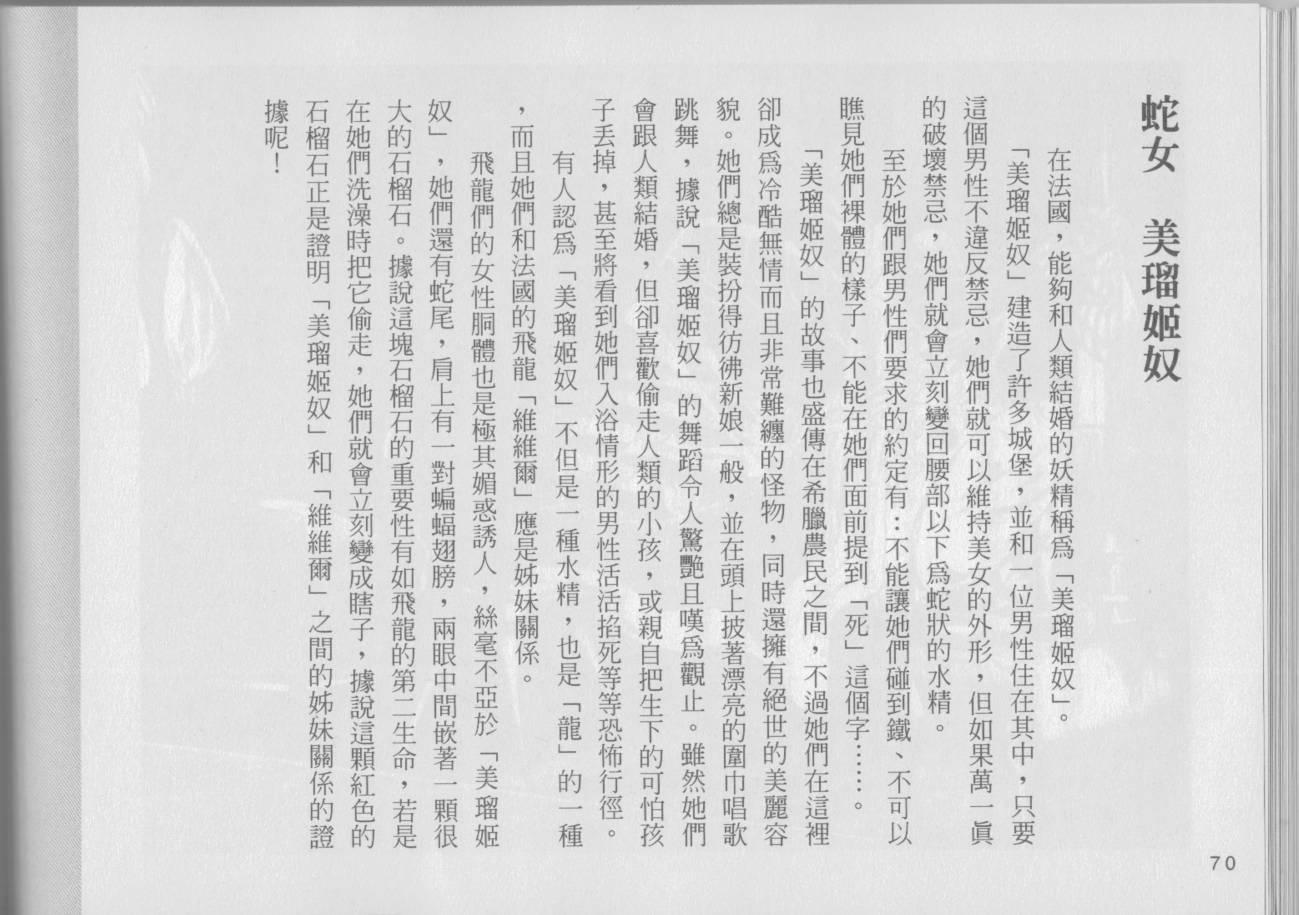 蛇女　美瑠姬奴
在法國，能夠和人類結婚的妖精稱爲「美瑠姬奴」。
「美瑠姬奴」建造了許多城堡，並和一位男性住在其中，只要
這個男性不違反禁忌，她們就可以維持美女的外形，但如果萬一眞
的破壞禁忌，她們就會立刻變回腰部以下爲蛇狀的水精。
至於她們跟男性們要求的約定有：不能讓她們碰到鐵、不可以
瞧見她們裸體的樣子、不能在她們面前提到「死」這個字……。
「美瑠姬奴」的故事也盛傳在希臘農民之間，不過她們在這裡
卻成爲冷酷無情而且非常難纏的怪物，同時還擁有絕世的美麗容
貌。她們總是裝扮得彷彿新娘一般，並在頭上披著漂亮的圍巾唱歌
跳舞，據說「美瑠姬奴」的舞蹈令人驚艷且嘆爲觀止。雖然她們
會跟人類結婚，但卻喜歡偷走人類的小孩，或親自把生下的可怕孩
子丟掉，甚至將看到她們入浴情形的男性活活掐死等等恐怖行徑。
有人認爲「美瑠姬奴」不但是一種水精，也是「龍」的一種
，而且她們和法國的飛龍「維維爾」應是姊妹關係。
飛龍們的女性胴體也是極其媚惑誘人，絲毫不亞於「美瑠姬
奴」，她們還有蛇尾，肩上有一對蝙蝠翅膀，兩眼中間嵌著一顆很
大的石榴石。據說這塊石榴石的重要性有如飛龍的第二生命，若是
在她們洗澡時把它偷走，她們就會立刻變成瞎子，據說這顆紅色的
石榴石正是證明「美瑠姬奴」和「維維爾」之間的姊妹關係的證
據呢！
70